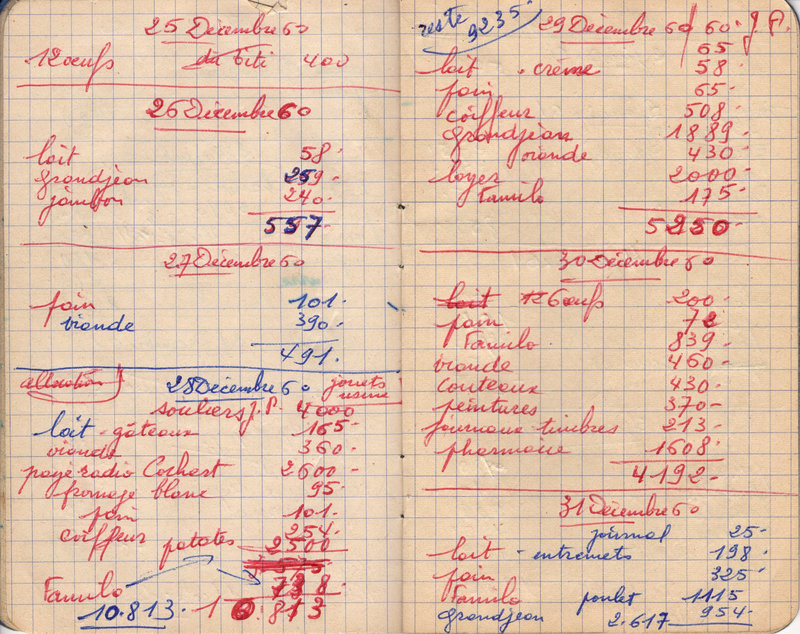 25 Décembre 60
12 oeufs du titi 400
26 Décembre 60
lait 58.
grandjean 259.
jambon 240.
557.
27 Décembre 60
pain 101.
viande 390.
491.
allocation 28 Décembre 60 jouets
usine
souliers J.P. 4000
lait - gâteaux 165.
viande 360.
payé radio Cochast 2600
fromage blanc 95.
pain 101.
coiffeur 254.
patates 2500
Familo 738
10.813. 10.813
reste 9235.
29 Décembre 60 60. J.P.
65
lait . crème 58.
pain 65.
coiffeur 508.
grandjean 1889.
viande 430.
loyer 2000.
Familo 175.
5250.
30 Décembre 60
lait 6 oeufs 200.
pain 72
Familo 839.
viande 460.
couteaux 430.
peintures 370-
journaux-timbres 213.
pharmacie 1608.
4192-
31 Décembre 60
journal 25-
lait - entremets 198.
pain 325.
Familo poulet 1115
grandjean 2.617 954.